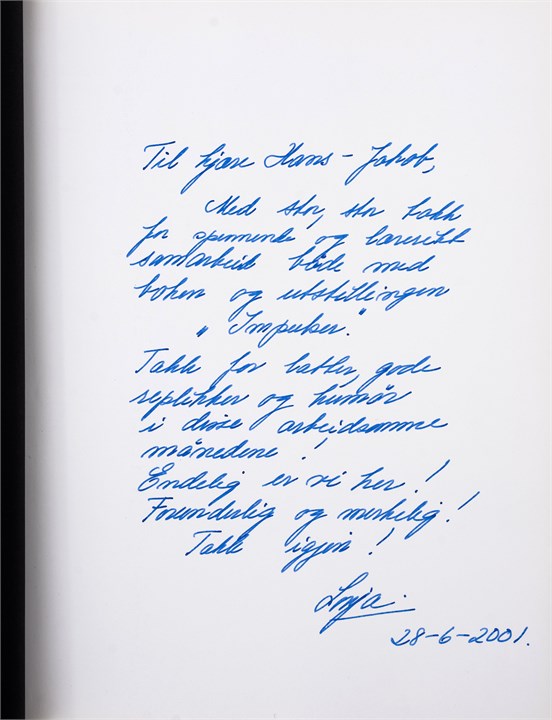 Til kjære Hans-Jakob,
Med stor, stor takk
for spennende og lærerikt
samarbeid både med
boken og utstillingen
"Impulser."
Takk for latter, gode
replikker og humør
i disse arbeidsomme
månedene!
Endelig er vi her!
Forunderlig og merkelig!
Takk igjen!
28-6-2001.